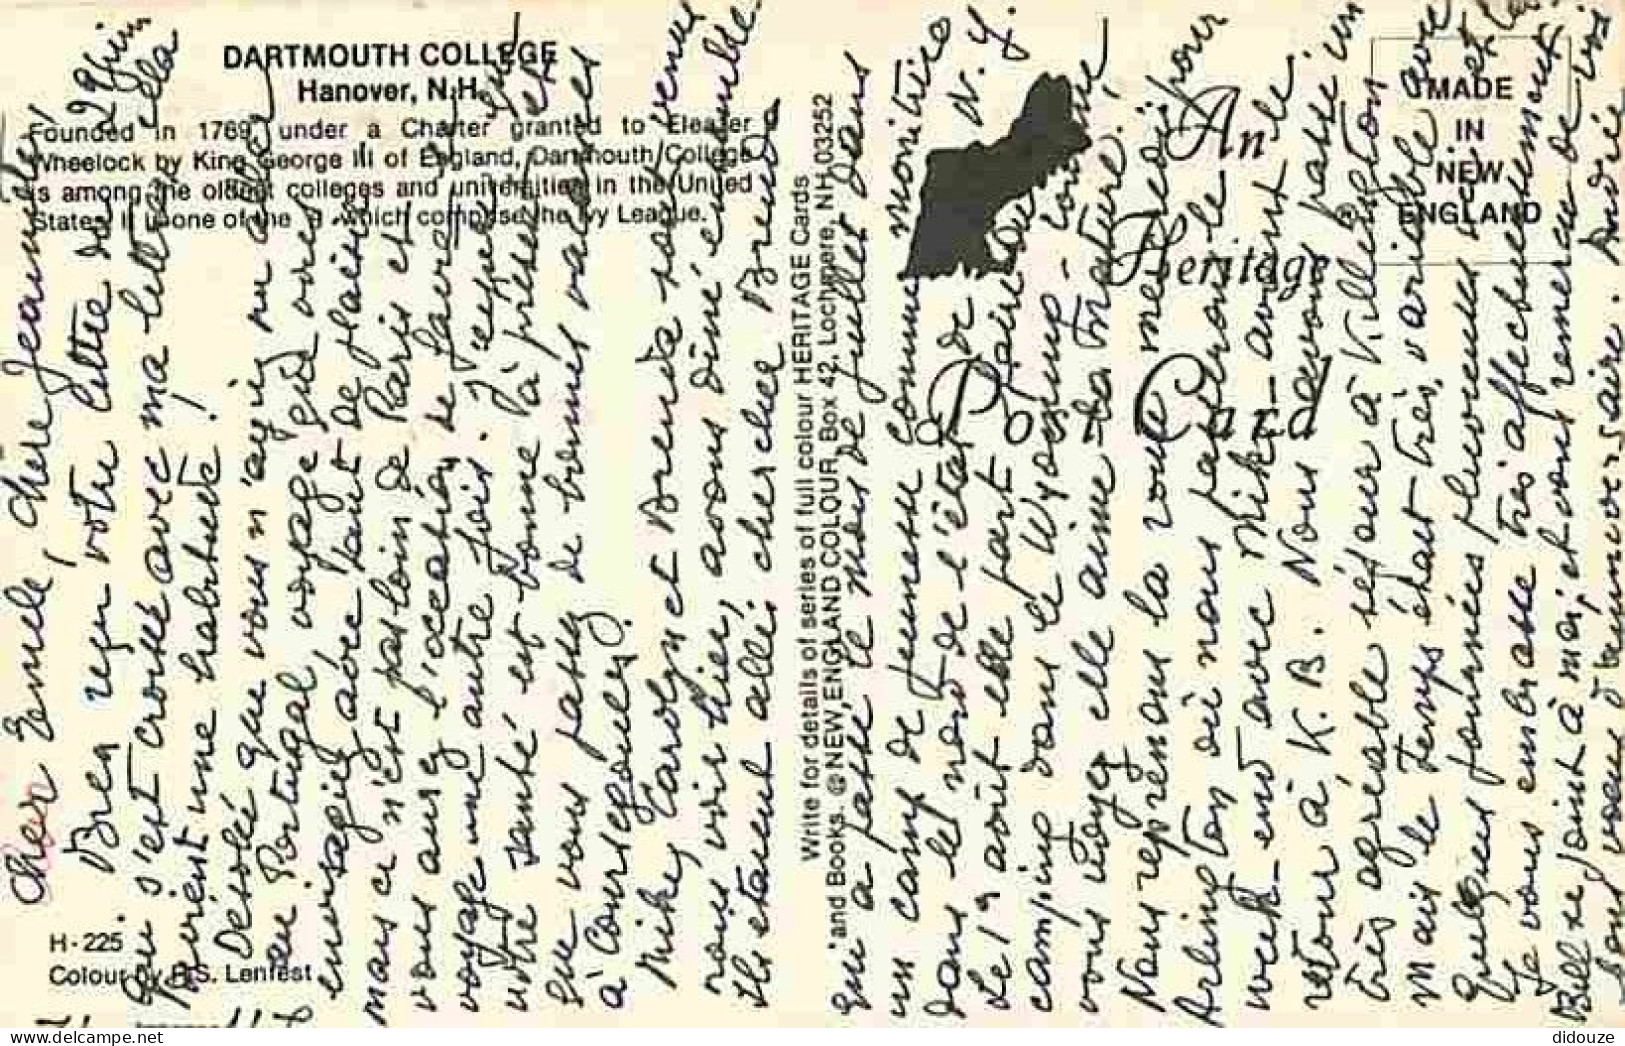 DARTMOUTH COLLEGE
Hanover, N.H.
Founded in 1769, under a Charter granted to Eleazer
Wheelock by King George III of England, Dartmouth College
is among the oldest colleges and universities in the United
States. It is one of the which comprise the Ivy League.
H-225
Colour by R.S. Lenfest
Write for details of series of full colour HERITAGE Cards
and Books. @NEW ENGLAND COLOUR, Box 42, Lochmere, NH 03252
An
Heritage
Post Card
MADE
IN
NEW
ENGLAND
CherÉmile, chère
Bien reçu votre lettre du 29 juin
qui s'est croisée avec ma lettre
une habitude!
Désolée que vous n'ayiez pu aller
au Portugal, voyage que vous
envisagiez avec tant de plaisir
mais ce n'est pas loin de Paris et
vous aurez l'occasion de faire ce
voyage une autre fois. J'espère que
votre santé est bonne à présent et
que vous passez de bonnes vacances
à
Mike, Carolyn et Brenda sont venus
nous voir hier, avons dîné ensemble.
Ils étaient allés chercher Brenda
qui a passé le mois de juillet dans
un camp de jeunesse comme monitrice
dans le nord de l'état de N.Y.
Le 19 août elle part faire du
camping dans le Wyoming - comme
vous voyez elle aime la nature!
Nous reprenons la route mercredi pour
Arlington où nous passerons le
week-end avec Mike avant le
retour à K.B. Nous avons passé un
très agréable séjour à Killington
mais le temps était très variable avec
quelques journées pluvieuses
Je vous embrasse très affectueusement
Bill se joint à moi, et vous remercie de vos
bons voeux d'anniversaire. Andrée
didouze